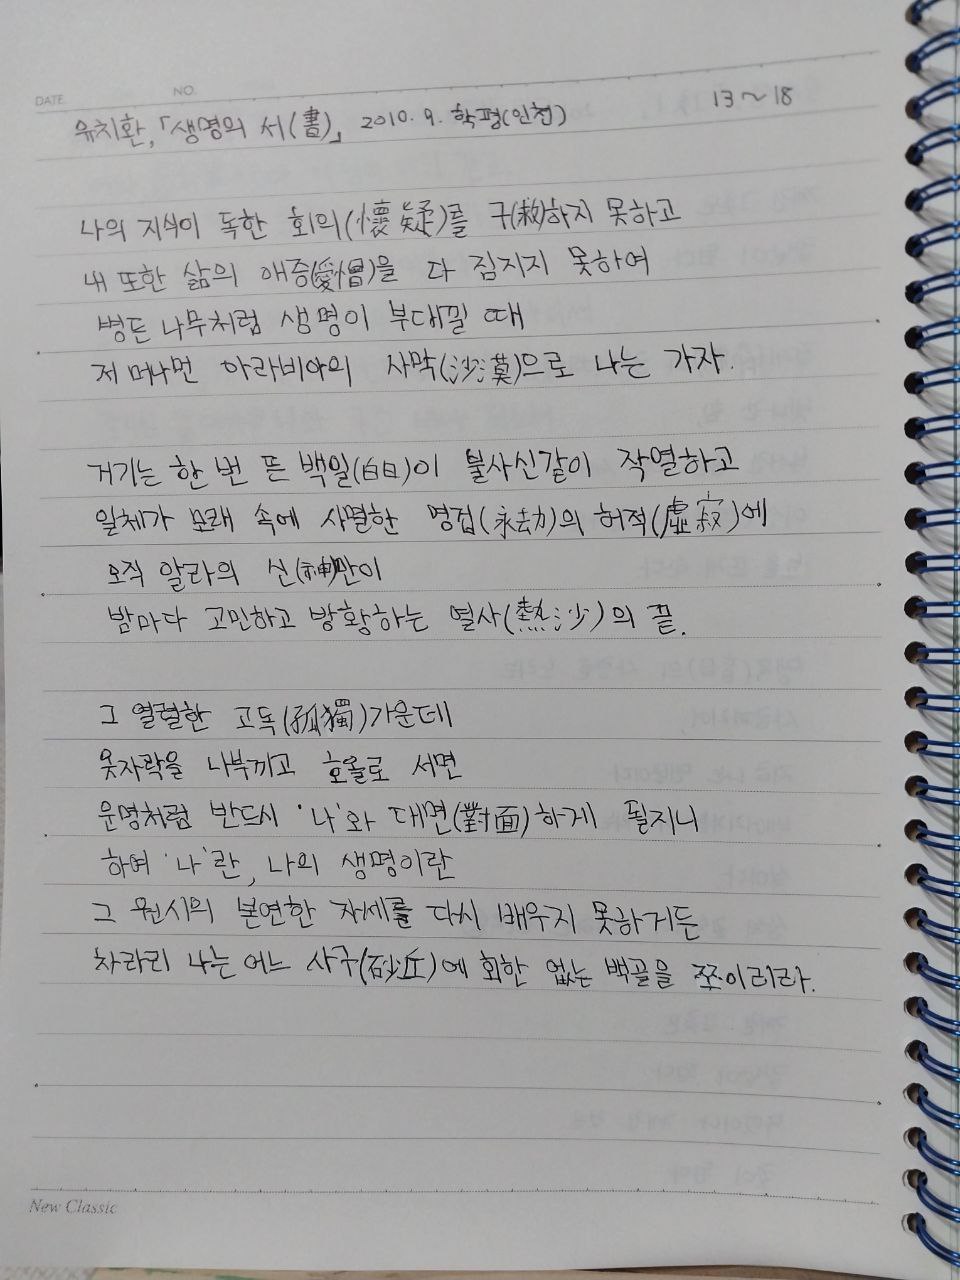 DATE. NO.
13~18
유치환, 「생명의 서(書)」 2010. 9. 학평(인천)
나의 지식이 독한 회의(懷疑)를 구(救)하지 못하고
내 또한 삶의 애증(愛憎)을 다 짐지지 못하여
병든 나무처럼 생명이 부대낄 때
저 머나먼 아라비아의 사막(沙漠)으로 나는 가자.
거기는 한 번 뜬 백일(白日)이 불사신같이 작열하고
일체가 모래 속에 사멸한 영겁(永劫)의 허적(虛寂)에
오직 알라의 신(神)만이
밤마다 고민하고 방황하는 열사(熱沙)의 끝.
그 열렬한 고독(孤獨)가운데
옷자락을 나부끼고 호올로 서면
운명처럼 반드시 '나'와 대면(對面)하게 될지니
하여 '나'란, 나의 생명이란
그 원시의 본연한 자세를 다시 배우지 못하거든
차라리 나는 어느 사구(砂丘)에 회한 없는 백골을 쪼이리라.
New Classic